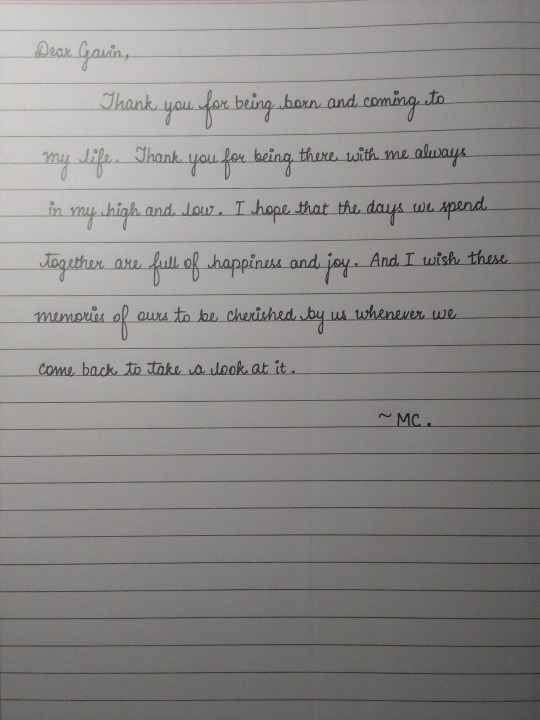 Dear Gavin,
Thank you for being born and coming to
my life. Thank you for being there with me always
in my high and low. I hope that the days we spend
together are full of happiness and joy. And I wish these
memories of ours to be cherished by us whenever we
come back to take a look at it.
~MC.